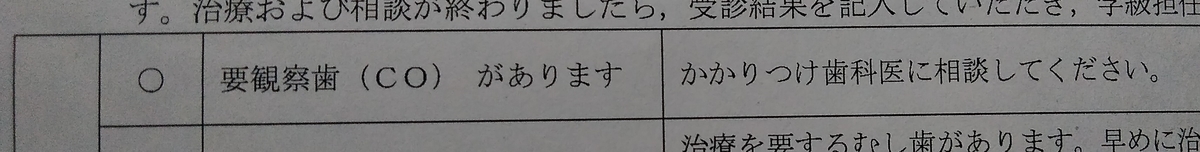 す。治療および相談が終わりましたら，受診結果を記入していただき，学級担任
○ 要観察歯（ＣＯ） があります かかりつけ歯科医に相談してください。
治療を要するむし歯があります。早めに治